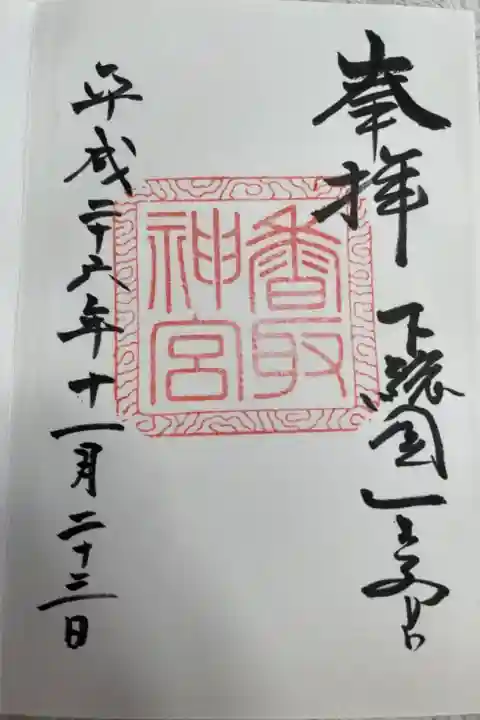 奉拝
下総国一之宮
香取
神宮
平成二十六年十一月二十三日